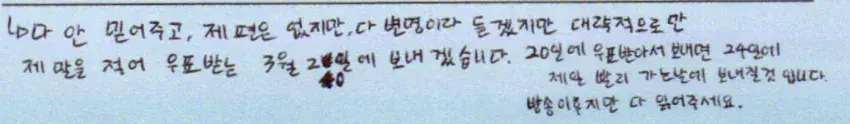 다 안 믿어주고, 제 편은 없지만, 다 변명이라 듣겠지만 대략적으로만
제 말을 적어 우표받는 3월 20일에 보내겠습니다. 20일에 우표받아서 보내면 24일에
제일 빨리 가는날에 보내질것 입니다.
방송이후지만 다 읽어주세요.